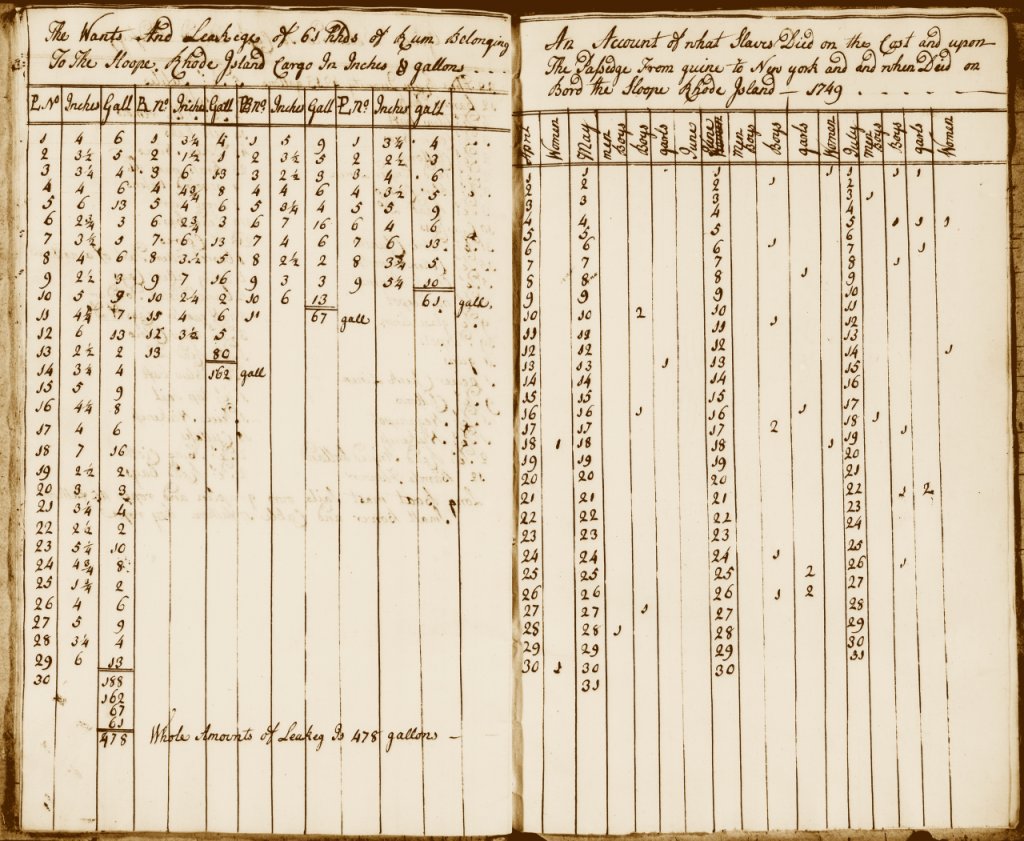 The Wants And Leakege of 61 Hhds of Rum Belonging
To The Sloope Rhode Island Cargo In Inches & gallons
Inches Gall B No Inches Gall B no Inches Gall No Inches gall
1 4 6 1 3¼ 4 1 5 9 1 3¼ 4
2 3½ 5 2 1½ 1 2 3½ 5 2 2½ 3
3 3¼ 4 3 6 13 3 2½ 3 3 4 6
4 4 6 4 4¾ 8 4 4 6 4 3½ 5
5 6 13 5 4 6 5 3¼ 4 5 5 9
6 2¾ 3 6 2¾ 3 6 7 16 6 4 6
7 3½ 5 7 6 13 7 4 6 7 6 13
8 4 6 8 3½ 5 8 2½ 2 8 5
9 2½ 3 9 7 16 9 3 3 9 5¼ 10
10 5 9 10 2¼ 2 10 6 13 61 gall
11 4½ 7 4 6 11 67 gall
12 6 13 12 3½ 5
13 2½ 2 13 80
14 3¼ 4 162 gall
15 5 9
16 4¾ 8
17 4 6
18 7 16
19 2½ 2
20 3 3
21 3¼ 4
22 2½ 2
23 5¼ 10
24 4¾ 8
25 1¾ 2
26 4 6
27 5 9
28 3¼ 4
29 6 13
30 188
162
67
61
478 Whole Amounts of Leakeg Is 478 gallons
An Account of what Slaves Died on the Cost and upon
The Passidge From guine to New york and and when Died on
Bord the Sloope Rhode Island — 1749
April Women May men Boys Boys garls June June men Boys Boys garls Women July men Boys Boys garls Women
1 1 1 1 1 1 1
2 2 2 1 2
3 3 3 3 1
4 4 4 4
5 5 5 5 1 1 1
6 6 6 1 6
7 7 7 7 1
8 8 8 1 8 1
9 9 9 9
10 10 2 10 10
11 11 11 1 11
12 12 12 12
13 13 1 13 13
14 14 14 14 1
15 15 15 15
16 16 1 16 1 16
17 17 17 2 17
18 1 18 18 1 18 1
19 19 19 19 1
20 20 20 20
21 21 21 21
22 22 22 22 1 2
23 23 23 23
24 24 24 1 24
25 25 25 2 25
26 26 26 1 2 26 1
27 27 1 27 27
28 28 1 28 28
29 29 29 29
30 1 30 30 30
31 31